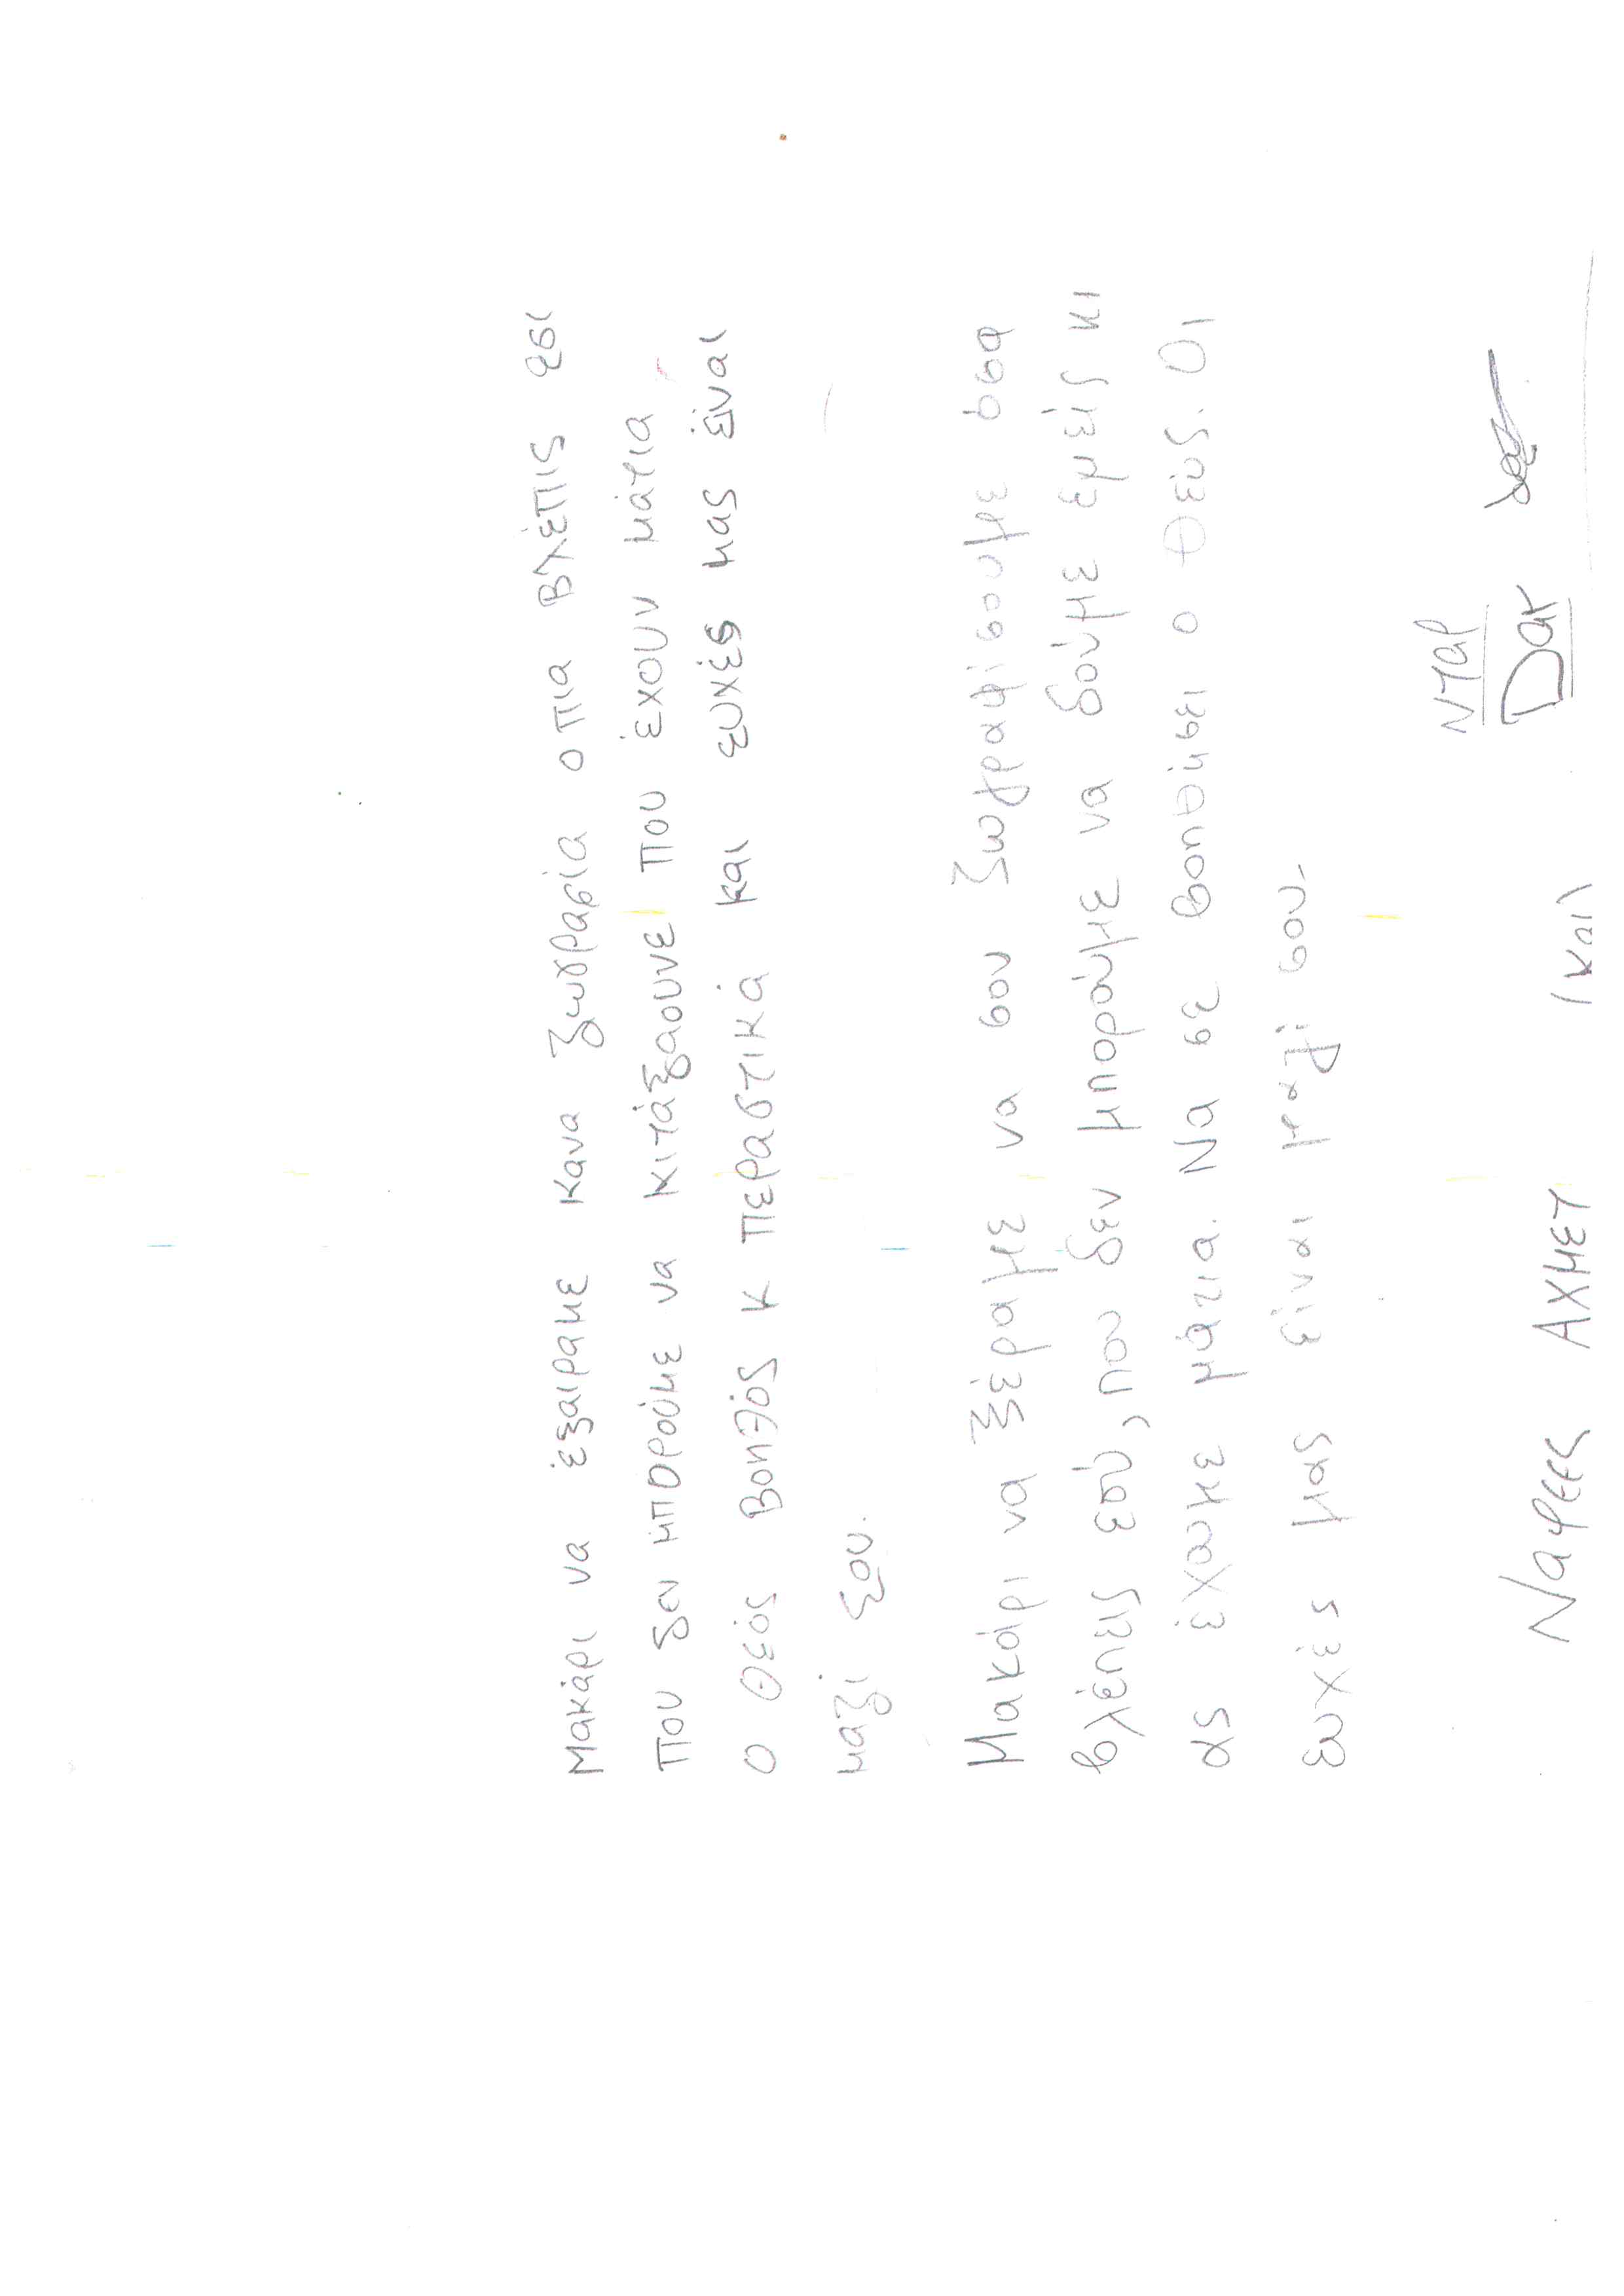 Μακάρι να έξαιραμε κανα ζωγραφία οπια Βλέπις εσι
που δεν μπορούμε να κιτάξαουνε που έχουν μάτια
ο Θεός Βοηθός κ περαστικά και ευχές μας είναι
μαζι σου.
Μακάρι να ξέραμε να σου ζωγραφίσουμε όσα
βλέπεις εσύ, που δεν μπορούμε να δούμε εμείς κι
ας έχουμε μάτια. Να σε βοηθήσει ο Θεός. Οι
ευχές μας είναι μαζί σου.
νταρ
Ναφεες ΑΧΜΕΤ (και) Dar